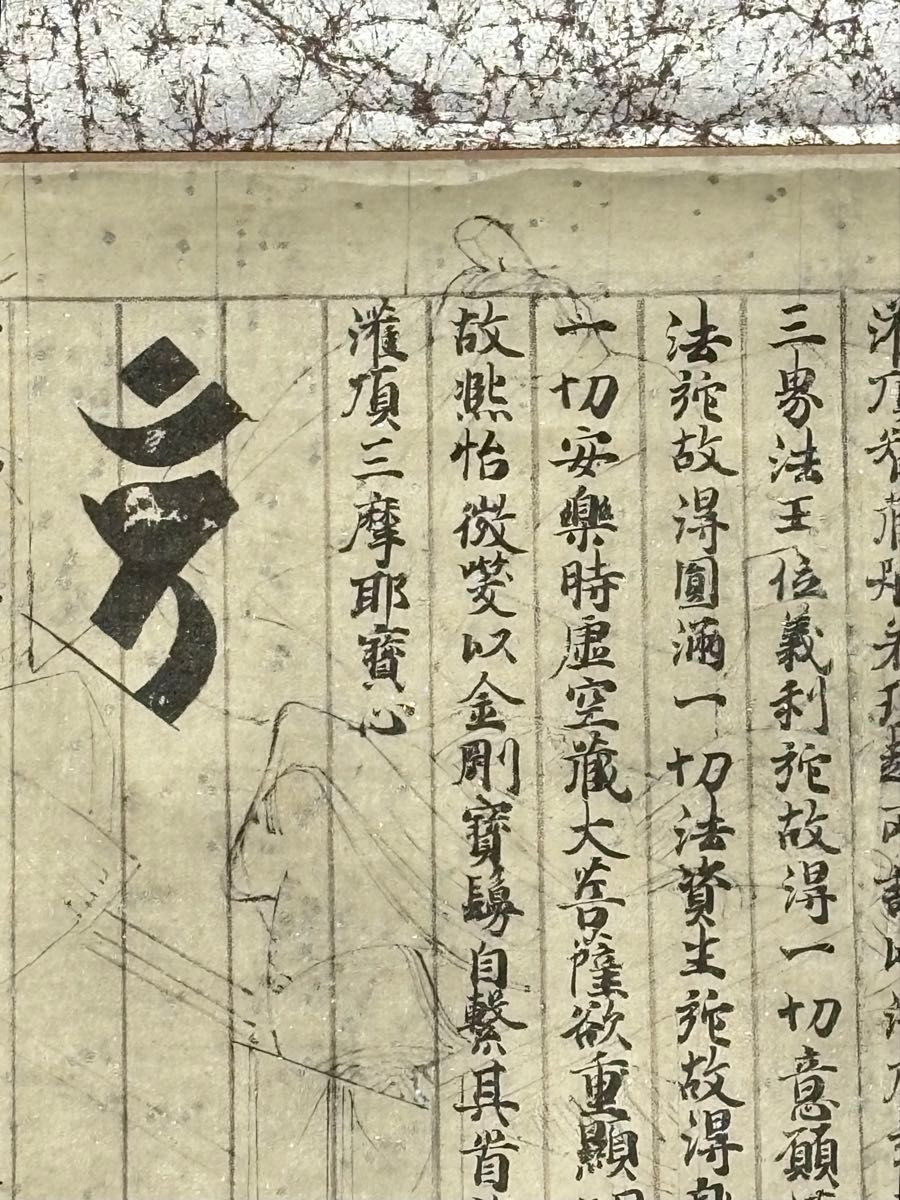 三界法王位義利施故得一切意願
法施故得圓滿一切法資生施故得
一切安樂時虛空藏大菩薩欲重顯
故熙怡微笑以金剛寶鬘自繫其首
灌頂三摩耶寶心
𑖝𑖿𑖨𑖽